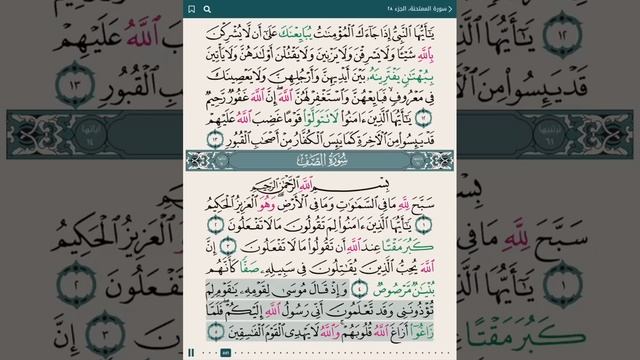 سورة الممتحنة، الجزء ٢٨
يَٰٓأَيُّهَا ٱلنَّبِيُّ إِذَا جَآءَكَ ٱلْمُؤْمِنَٰتُ يُبَايِعْنَكَ عَلَىٰٓ أَن لَّا يُشْرِكْنَ
بِٱللَّهِ شَيْـًٔا وَلَا يَسْرِقْنَ وَلَا يَزْنِينَ وَلَا يَقْتُلْنَ أَوْلَٰدَهُنَّ وَلَا يَأْتِينَ
بِبُهْتَٰنٍ يَفْتَرِينَهُۥ بَيْنَ أَيْدِيهِنَّ وَأَرْجُلِهِنَّ وَلَا يَعْصِينَكَ
فِي مَعْرُوفٍ فَبَايِعْهُنَّ وَٱسْتَغْفِرْ لَهُنَّ ٱللَّهَ إِنَّ ٱللَّهَ غَفُورٌ رَّحِيمٌ
١٢ يَٰٓأَيُّهَا ٱلَّذِينَ ءَامَنُوا۟ لَا تَتَوَلَّوْا۟ قَوْمًا غَضِبَ ٱللَّهُ عَلَيْهِمْ
قَدْ يَئِسُوا۟ مِنَ ٱلْءَاخِرَةِ كَمَا يَئِسَ ٱلْكُفَّارُ مِنْ أَصْحَٰبِ ٱلْقُبُورِ ١٣
سُورَةُ ٱلصَّفِّ
بِسْمِ ٱللَّهِ ٱلرَّحْمَٰنِ ٱلرَّحِيمِ
سَبَّحَ لِلَّهِ مَا فِي ٱلسَّمَٰوَٰتِ وَمَا فِي ٱلْأَرْضِ وَهُوَ ٱلْعَزِيزُ ٱلْحَكِيمُ
١ يَٰٓأَيُّهَا ٱلَّذِينَ ءَامَنُوا۟ لِمَ تَقُولُونَ مَا لَا تَفْعَلُونَ ٢
كَبُرَ مَقْتًا عِندَ ٱللَّهِ أَن تَقُولُوا۟ مَا لَا تَفْعَلُونَ ٣ إِنَّ
ٱللَّهَ يُحِبُّ ٱلَّذِينَ يُقَٰتِلُونَ فِي سَبِيلِهِۦ صَفًّا كَأَنَّهُم
بُنْيَٰنٌ مَّرْصُوصٌ ٤ وَإِذْ قَالَ مُوسَىٰ لِقَوْمِهِۦ يَٰقَوْمِ لِمَ
تُؤْذُونَنِي وَقَد تَّعْلَمُونَ أَنِّي رَسُولُ ٱللَّهِ إِلَيْكُمْ فَلَمَّا
زَاغُوٓا۟ أَزَاغَ ٱللَّهُ قُلُوبَهُمْ وَٱللَّهُ لَا يَهْدِي ٱلْقَوْمَ ٱلْفَٰسِقِينَ ٥
٥٥١